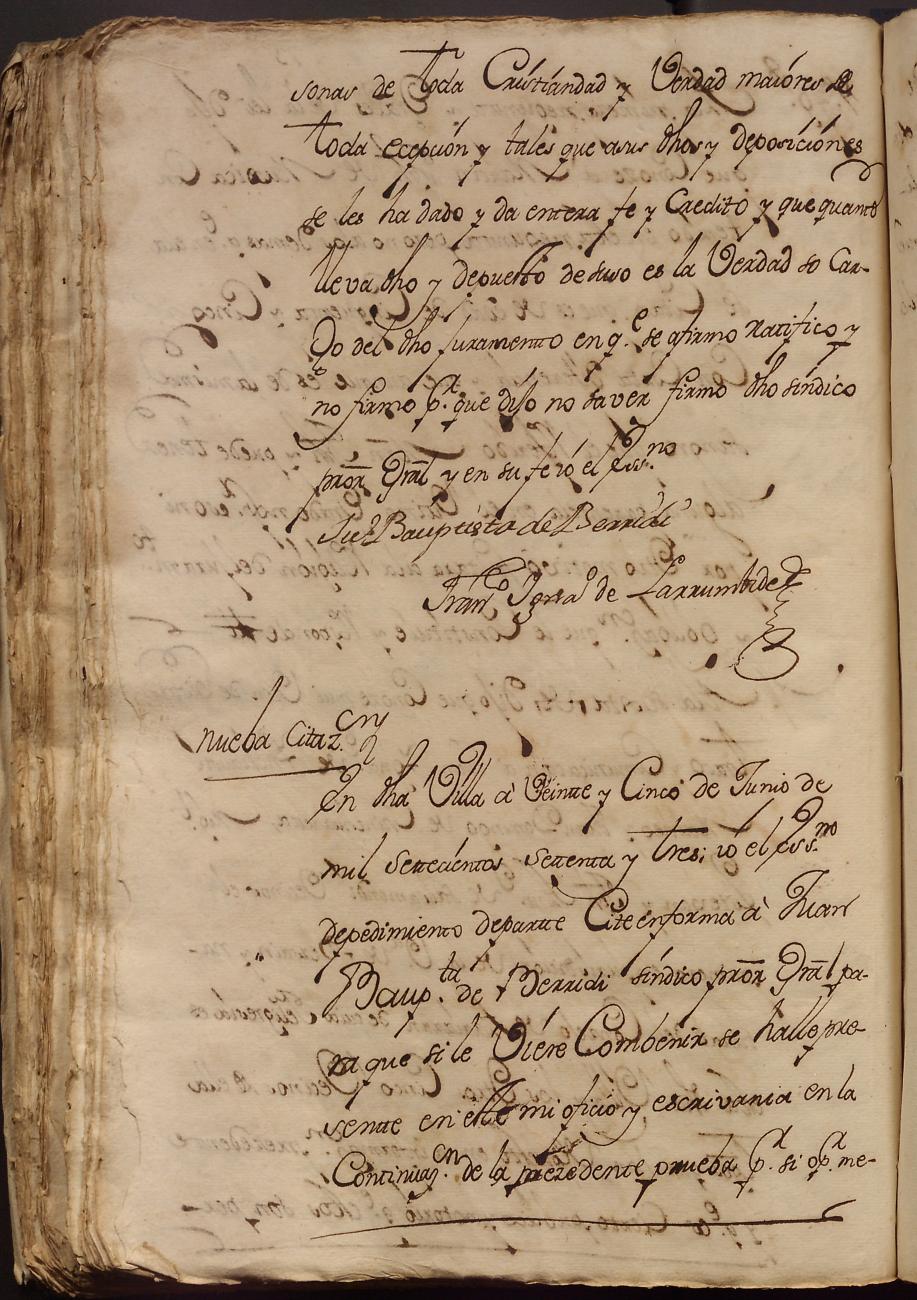 sonas de toda Cristiandad y Verdad maiores de
toda ecepción y tales que asus dhos y deposiciónes
se les ha dado y da entera fe y Credito y que quanto
lleva dho y depuesto de suso es la Verdad so Car-
go del dho Juramento en q.e se afirmo Ratifico y
no firmo p.r que dijo no saver firmo dho síndico
pror Gral y en su fe ió el Ess.no
Juº Bauptista de Berridi
Fran.co Ign.º de Larrumbide
nueba Citaz.on
En dha Villa à Veinte y Cinco de Junio de
mil settecientos settenta y tres; ió el Ess.no
depedimiento departte Cite enforma à Juan
Baup.ta de Berridi síndico pror Gral pa-
ra que si le Viere Combenir se halle pre-
sentte en este mi oficio y escrivania en la
Continuas.on de la prezedente prueba p.r si o p.r me-